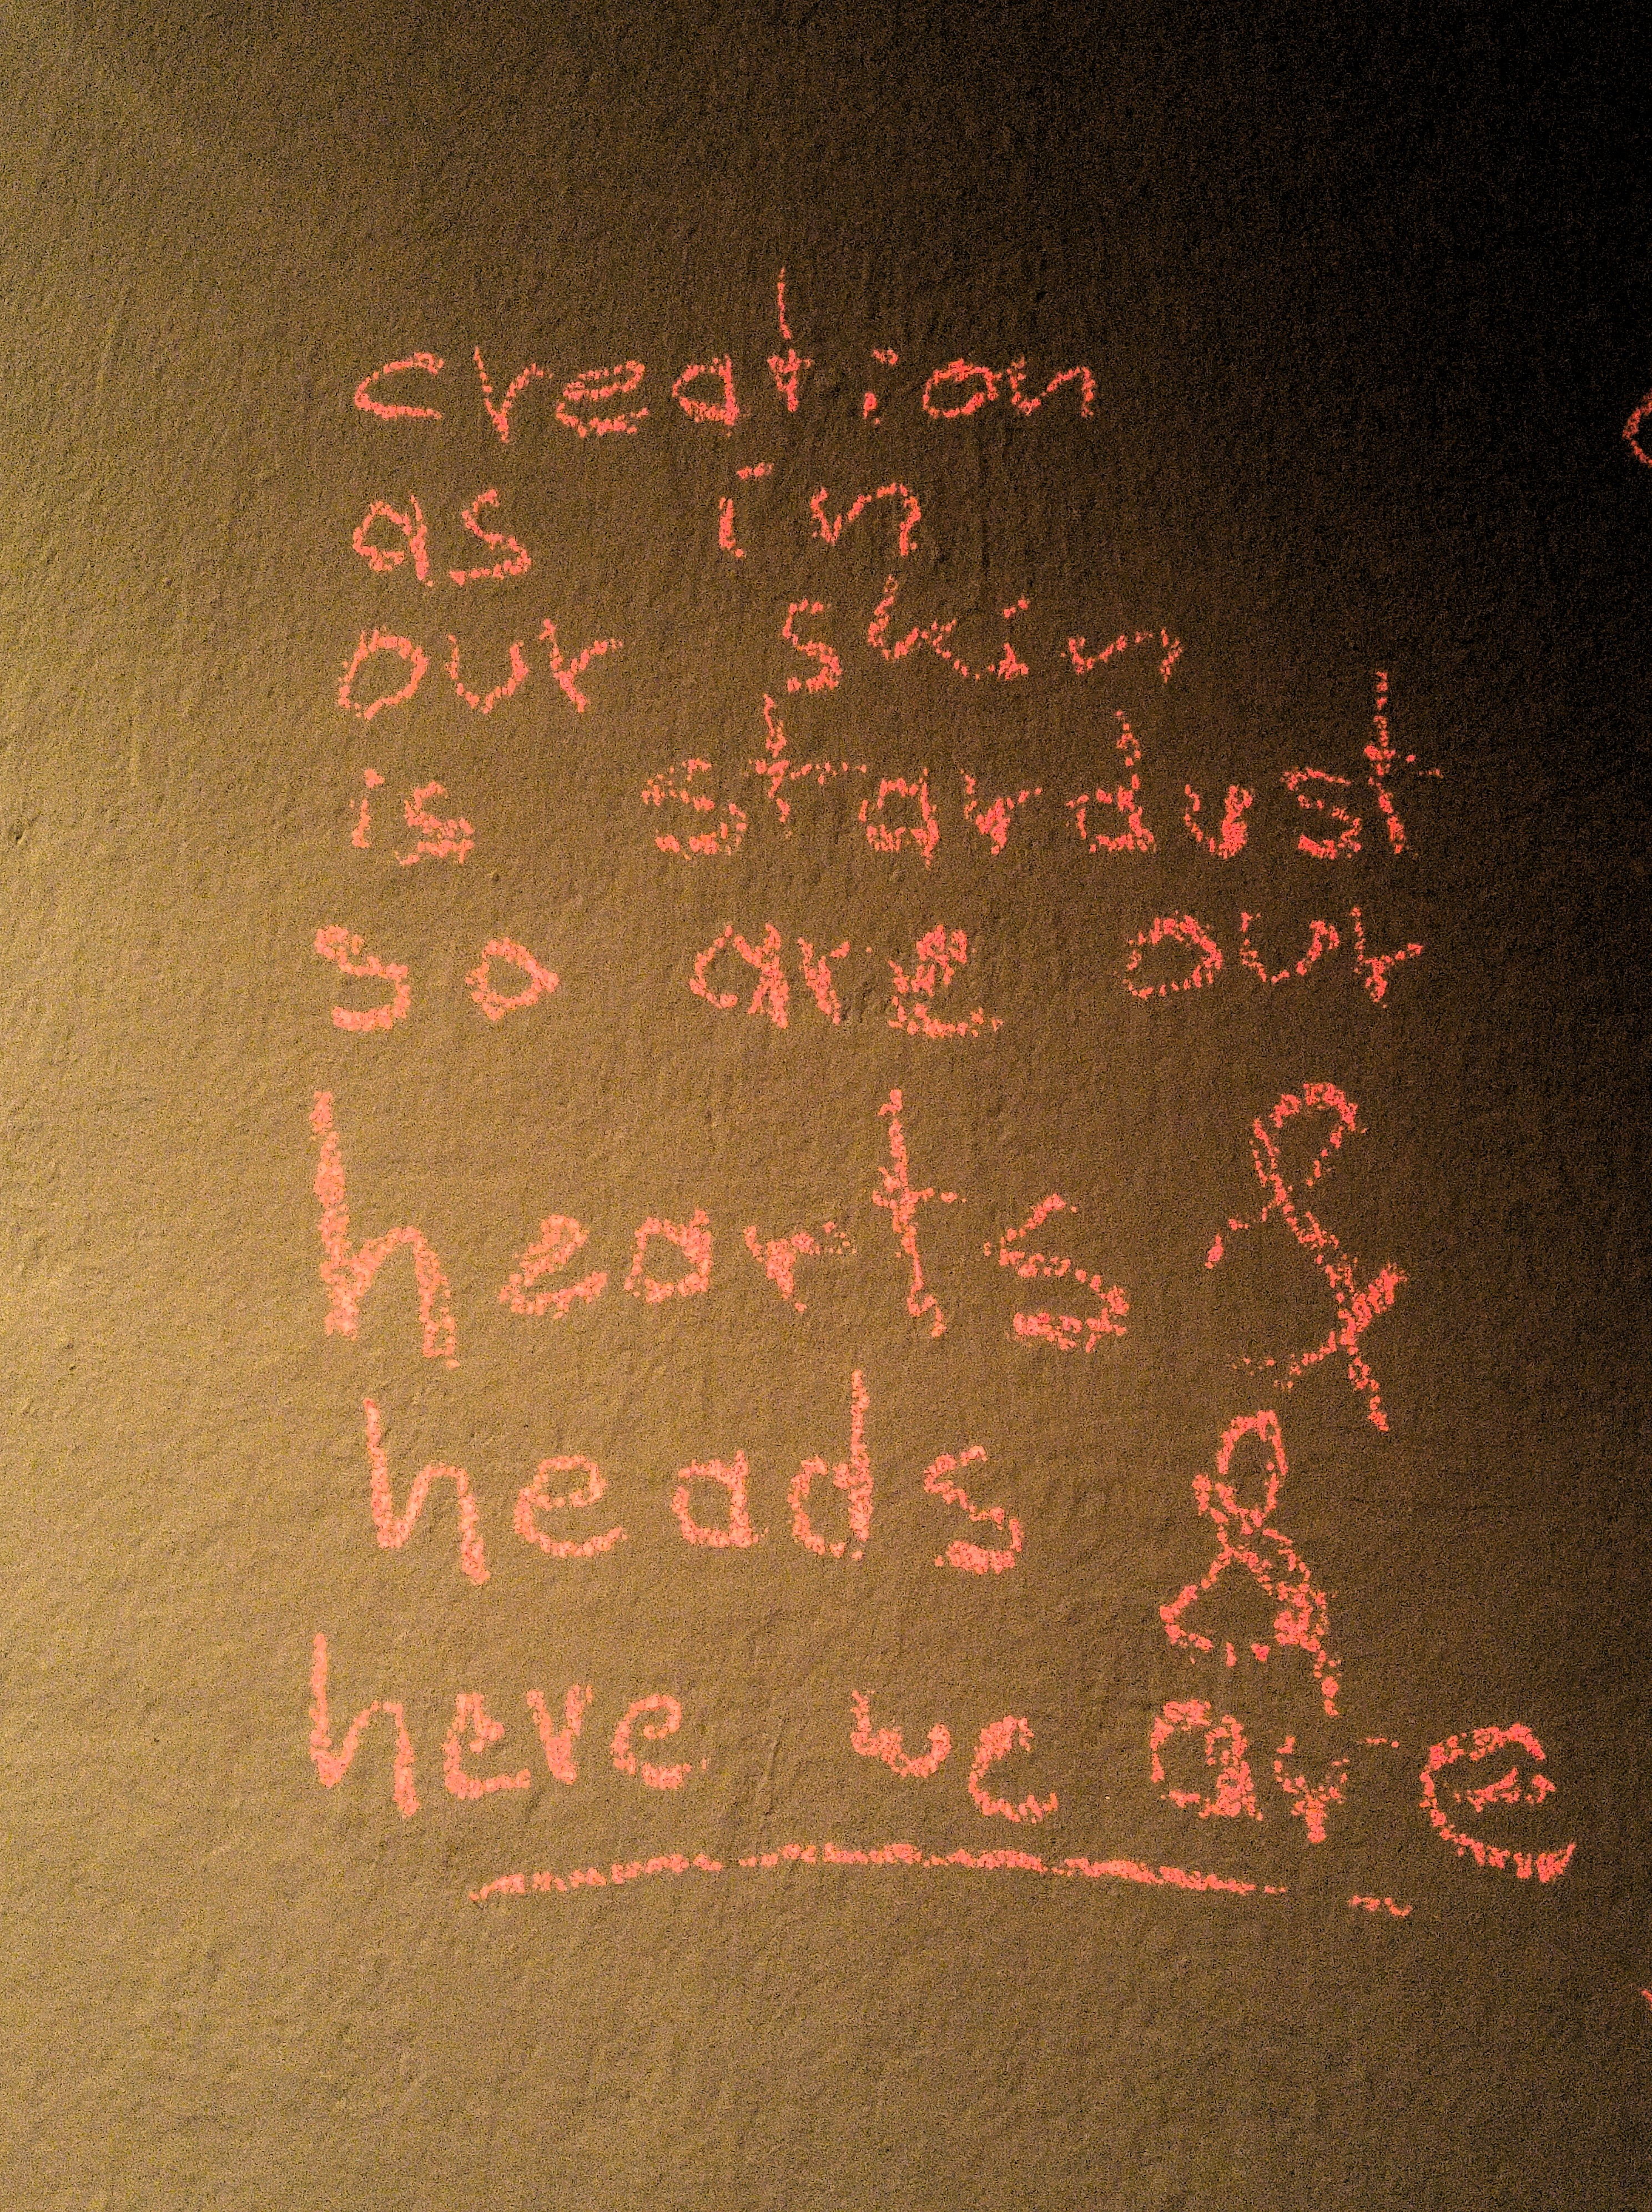 creation
as in
our skin
is stardust
so are our
hearts &
heads &
here we are